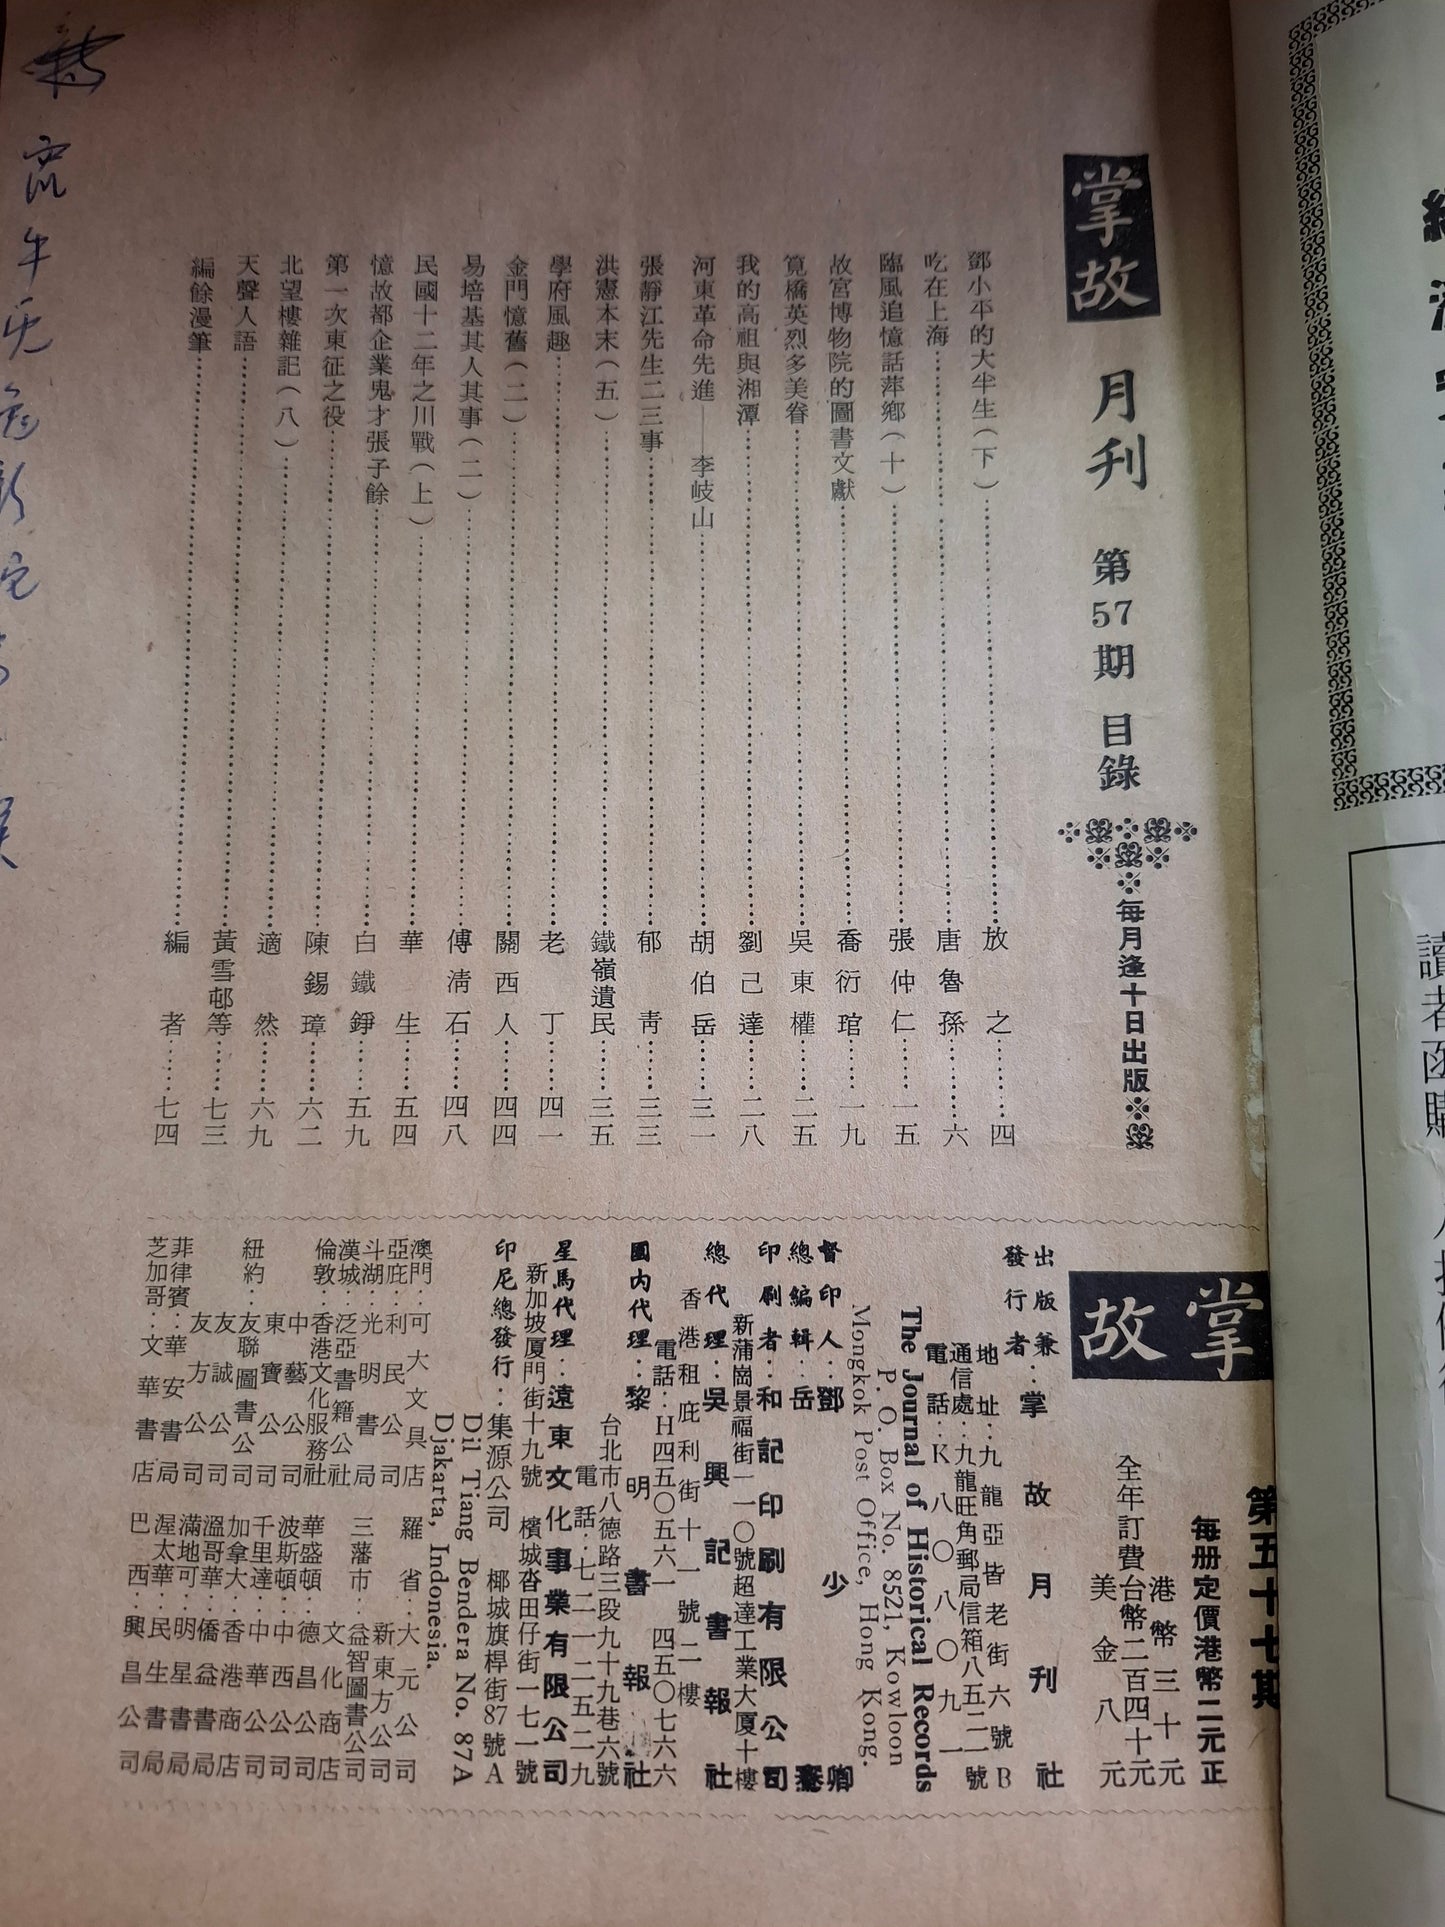 掌故月刊 第57期 目錄
每月逢十日出版
鄧小平的大半生(下)……放之……四
吃在上海……唐魯孫……六
臨風追憶話萍鄉(十)……張仲仁……一五
故宮博物院的圖書文獻……喬衍琯……一九
筧橋英烈多美眷……吳東權……二五
我的高祖與湘潭……劉己達……二八
河東革命先進——李岐山……胡伯岳……三一
張靜江先生二三事……郁青……三三
洪憲本末(五)……鐵嶺遺民……三五
學府風趣……老丁……四一
金門憶舊(二)……關西人……四四
易培基其人其事(二)……傅清石……四八
民國十二年之川戰(上)……華生……五四
憶故都企業鬼才張子餘……白鐵錚……五九
第一次東征之役……陳錫璋……六二
北望樓雜記(八)……適然……六九
天聲人語……黃雪邨等……七三
編餘漫筆……編者……七四
掌故
第五十七期
每册定價港幣二元正
全年訂費
港幣三十元
台幣二百四十元
美金八元
出版兼發行者:掌故月刊社
地址:九龍亞皆老街六號B
通信處:九龍旺角郵局信箱八五二一號
電話:K八〇八〇九一
The Journal of Historical Records
P. O. Box No. 8521, Kowloon
Mongkok Post Office, Hong Kong.
督印人:鄧少卿
總編輯:岳騫
印刷者:和記印刷有限公司
新蒲崗景福街一一〇號超達工業大厦十樓
總代理:吳興記書報社
香港租庇利街十一號二樓
電話:H四五〇五六一 四五〇七六六
國内代理:黎明書報社
台北市八德路三段九十九巷六號
電話:七二一二五二九
星馬代理:遠東文化事業有限公司
新加坡厦門街十九號 檳城沓田仔街一七一號
印尼總發行:集源公司 椰城旗桿街87號A
Dil Tiang Bendera No. 87A
Djakarta, Indonesia.
澳門:可大文具店
亞庇:利民公司
斗湖:光明書局
漢城:泛亞書籍公社
倫敦:香港文化服務社
中藝公司
東寶公司
紐約:友聯圖書公司
友誠公司
友方公司
菲律賓:華安書局
芝加哥:文華書店
羅省:大元公司
新東方公司
三藩市:益智圖書公司
文化商店
華盛頓:德昌公司
波斯頓:中西公司
千里達:中華公司
加拿大:香港商店
溫哥華:僑益書局
滿地可:明星書局
渥太華:民生書局
巴西:興昌公司
讀者函購